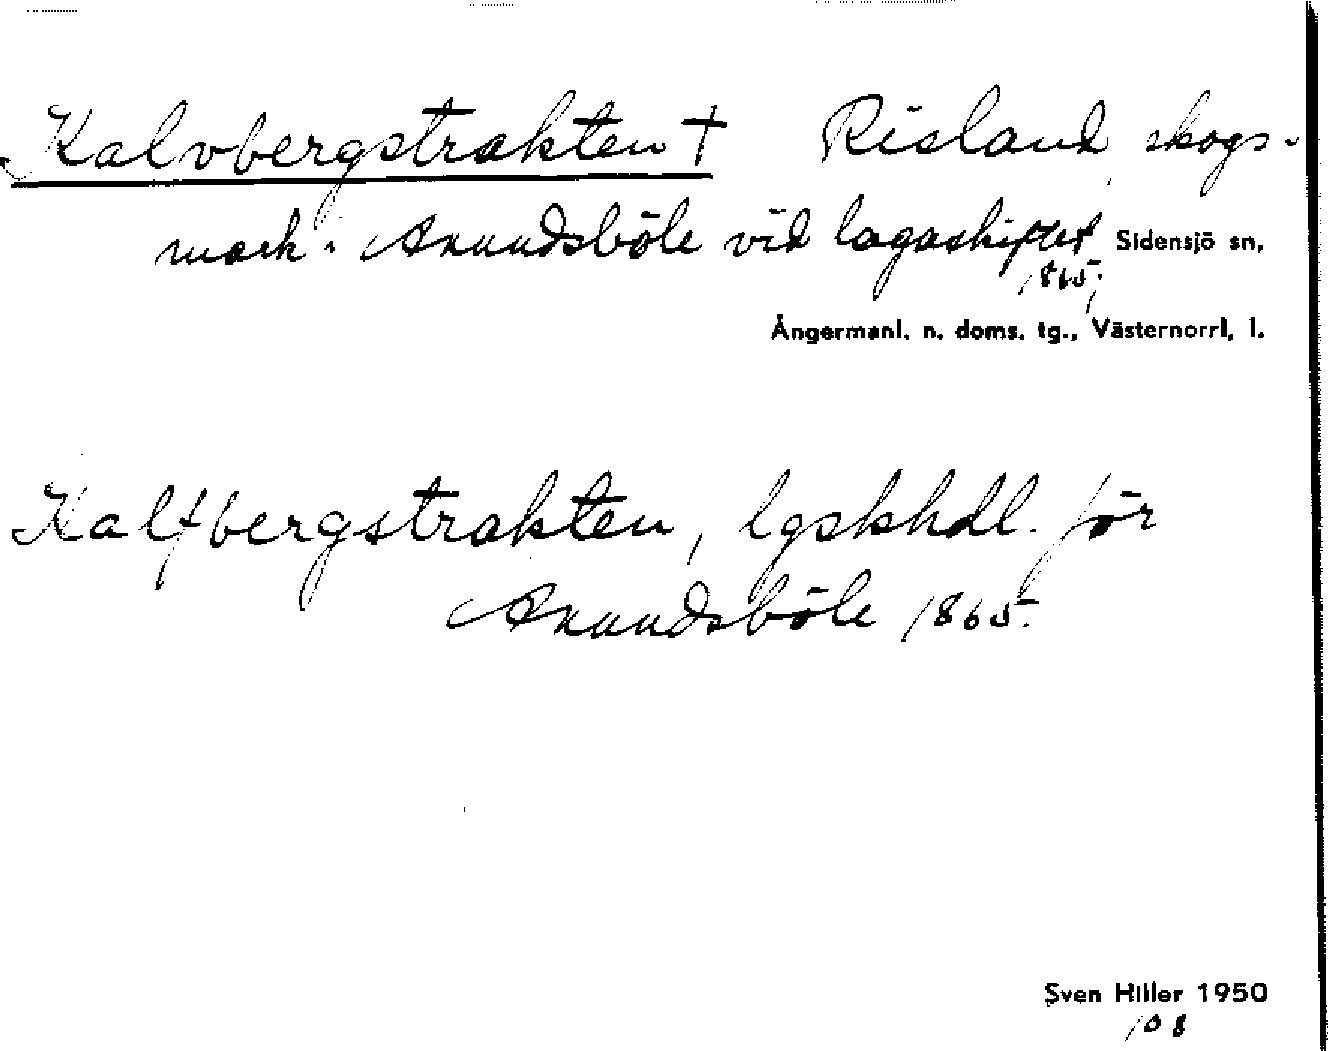 Kalvbergstrakten † Risland, skogs-
mark i Anundsböle vid lagaskiftet Sidensjö sn,
1865.
Ångermanl. n. doms. tg., Västernorrl. l.
Kalfbergstrakten, lgskhdl. för
Anundsböle 1865.
Sven Hiller 1950
108